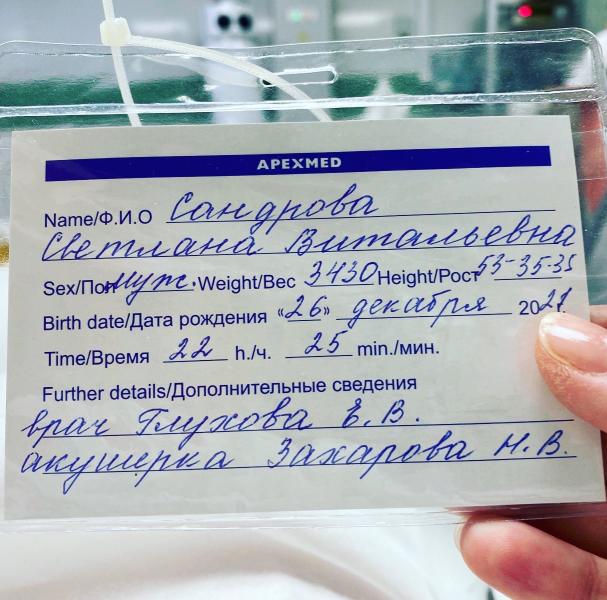 APEXMED
Name/Ф.И.О Сандрова
Светлана Витальевна
Sex/Пол муж. Weight/Вес 3430 Height/Рост 53-35-35
Birth date/Дата рождения «26» декабря 2021.
Time/Время 22 h./ч. 25 min./мин.
Further details/Дополнительные сведения
врач Глухова Е.В.
акушерка Захарова Н.В.